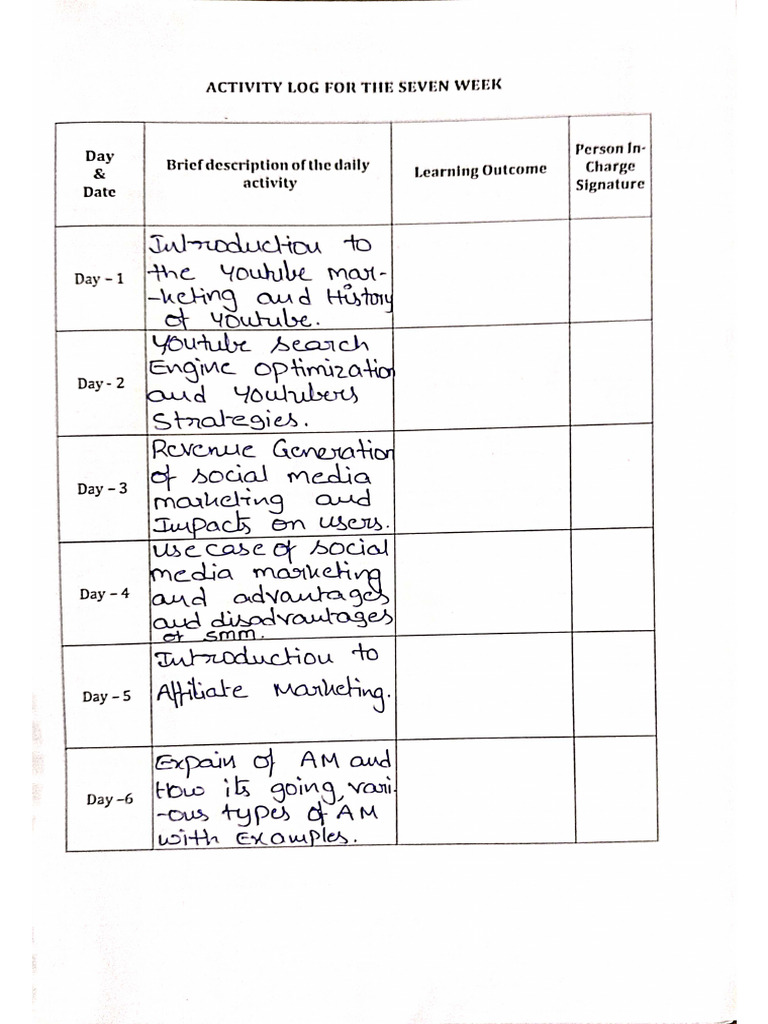 ACTIVITY LOG FOR THE SEVEN WEEK
Day
&
Date
Brief description of the daily
activity
Learning Outcome
Person In-
Charge
Signature
Day – 1
Introduction to
the Youtube mar-
-keting and History
of Youtube.
Day - 2
Youtube search
Engine optimization
and Youtubers
Strategies.
Day – 3
Revenue Generation
of social media
marketing and
Impacts on users.
Day – 4
Use case of social
media marketing
and advantages
and disadvantages
of smm.
Day – 5
Introduction to
Affiliate Marketing.
Day –6
Expain of AM and
How its going, vari-
-ous types of AM
with Examples.